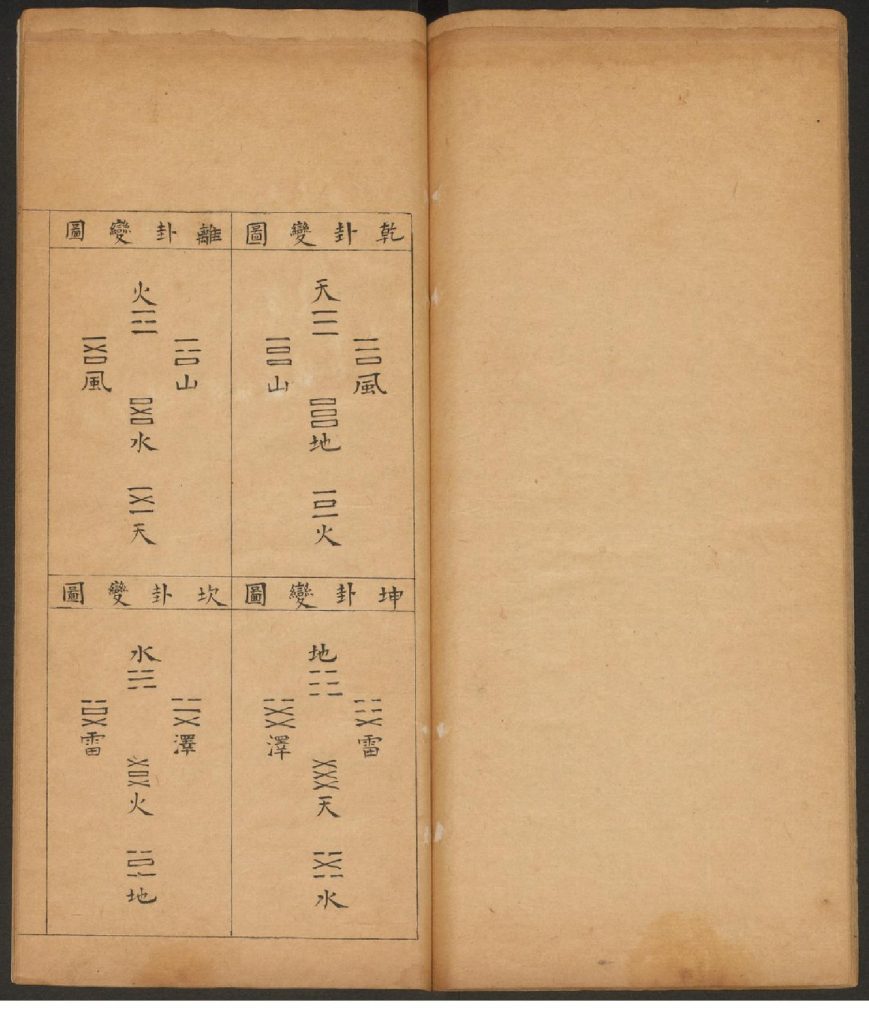 乾卦變圖
天
風
山
地
火
坤卦變圖
地
雷
澤
天
水
離卦變圖
火
山
風
水
天
坎卦變圖
水
澤
雷
火
地